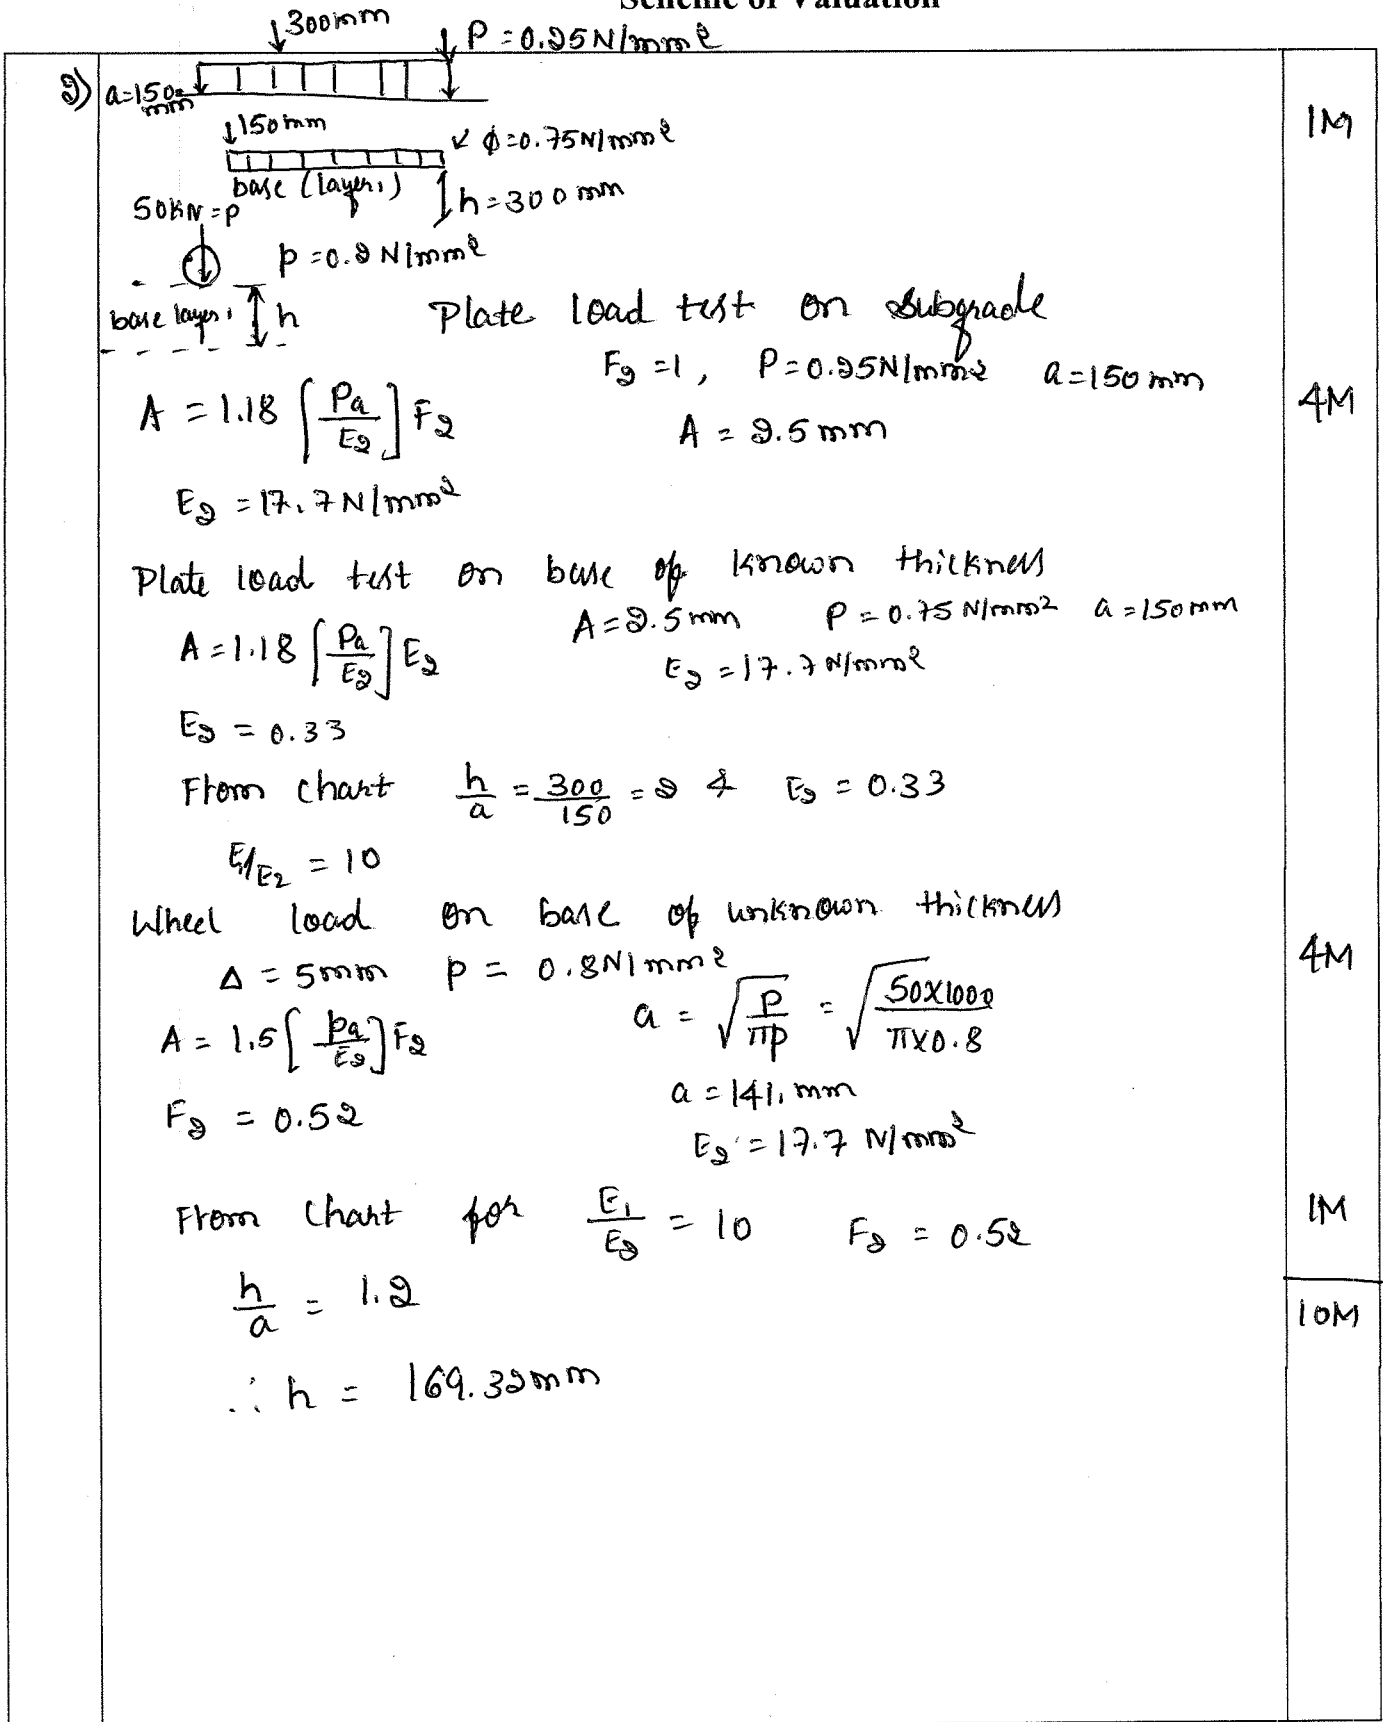 Scheme of Valuation
↓300mm
P = 0.25N/mm2
2) a=150mm
↓150mm
ϕ=0.75N/mm2
1M
base (layer1)
h=300mm
50KN=p
p=0.8N/mm2
base layer1 h
Plate load test on Subgrade
F2 =1, P=0.25N/mm2 a=150mm
A = 1.18 [Pa/E2] F2
A = 2.5mm
4M
E2 = 17.7N/mm2
Plate load test on base of known thickness
A=2.5mm P=0.75 N/mm2 a=150mm
A=1.18 [Pa/E2] E2
E2 =17.7N/mm2
E2 = 0.33
From chart h/a = 300/150 = 2 & E2 = 0.33
E1/E2 = 10
Wheel load on base of unknown thickness
Δ = 5mm p = 0.8N/mm2
4M
A = 1.5 [pa/E2] F2
a = √(P/πp) = √(50X1000/πX0.8)
a = 141. mm
F2 = 0.52
E2 = 17.7 N/mm2
From Chart for E1/E2 = 10 F2 = 0.52
1M
h/a = 1.2
10M
∴ h = 169.32mm